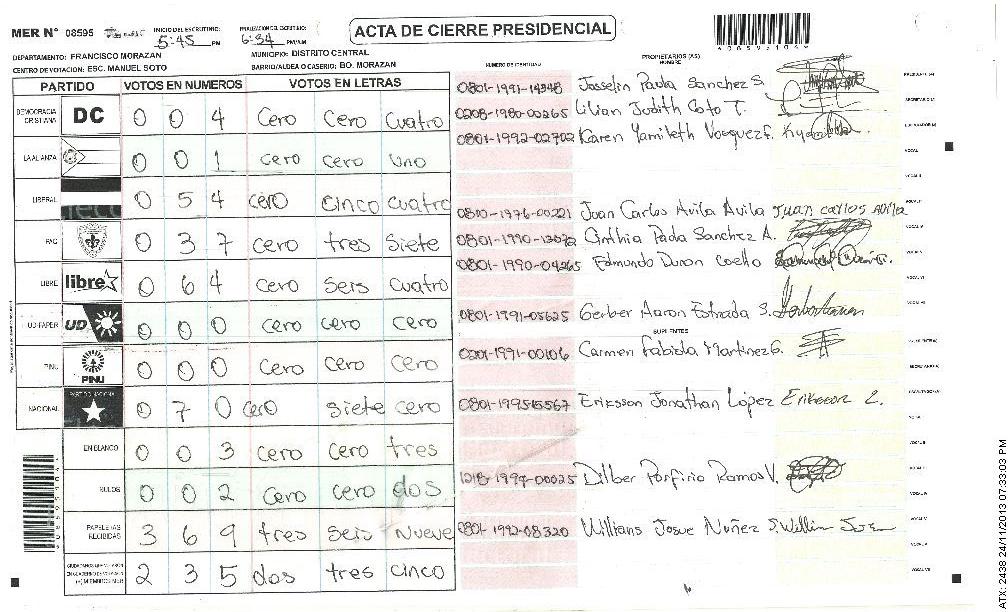 MER N° 08595
INICIO DEL ESCRUTINIO: 5:45 PM
FINALIZACION DEL ESCRUTINIO: 6:34 PM/AM
ACTA DE CIERRE PRESIDENCIAL
DEPARTAMENTO: FRANCISCO MORAZAN
MUNICIPIO: DISTRITO CENTRAL
CENTRO DE VOTACION: ESC. MANUEL SOTO
BARRIO/ALDEA O CASERIO: BO. MORAZAN
PARTIDO VOTOS EN NUMEROS VOTOS EN LETRAS
NUMERO DE IDENTIDAD PROPIETARIOS (AS) NOMBRE
DEMOCRACIA CRISTIANA DC 0 0 4 cero cero cuatro
LA ALIANZA 0 0 1 cero cero uno
LIBERAL 0 5 4 cero cinco cuatro
PAC 0 3 7 cero tres siete
LIBRE libre 0 6 4 cero seis cuatro
UD-FAPER UD 0 0 0 cero cero cero
PINU PINU 0 0 0 cero cero cero
NACIONAL 0 7 0 cero siete cero
EN BLANCO 0 0 3 cero cero tres
NULOS 0 0 2 cero cero dos
PAPELETAS RECIBIDAS 3 6 9 tres seis nueve
2 3 5 dos tres cinco
0801-1991-14348 Josselin Paola Sanchez S.
0208-1980-00265 Lilian Judith Coto T.
0801-1992-02702 Karen Yamileth Vasquez F.
0810-1976-00221 Juan Carlos Avila Avila Juan carlos Avila
Cinthia Paola Sanchez A.
0801-1990-04265 Edmundo Duron Coello
0801-1991-05625 Gerber Aaron Estrada S.
SUPLENTES
0201-1991-00106 Carmen Fabiola Martinez G.
0801-199515567 Eriksson Jonathan López Eriksson L.
Dilber Porfirio Ramos V.
0801-1992-08320 Willians Josue Nuñez S.
ATX: 2438 24/11/2013 07:33:03 PM